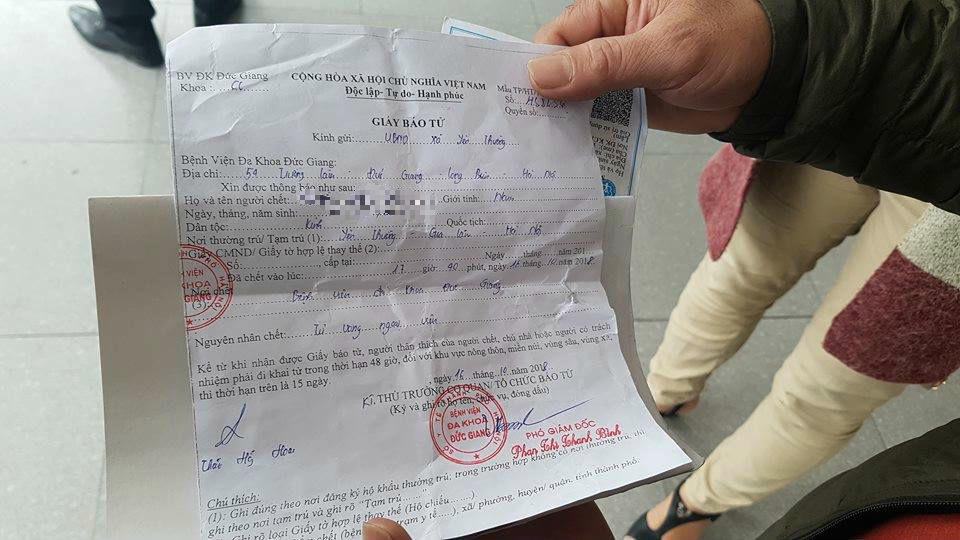 BV ĐK Đức Giang
CỘNG HÒA XÃ HỘI CHỦ NGHĨA VIỆT NAM
Khoa : CC
Độc lập- Tự do- Hạnh phúc
Mẫu TP/HT
Số:
Quyển số:
GIẤY BÁO TỬ
Kính gửi: UBND xã Yên Thường
Bệnh Viện Đa Khoa Đức Giang:
Địa chỉ: 54 Trường Lâm Đức Giang Long Biên Hà Nội
Xin được thông báo như sau:
Họ và tên người chết: Giới tính: Nam
Ngày, tháng, năm sinh:
Dân tộc: Kinh Quốc tịch:
Nơi thường trú/ Tạm trú (1): Yên Thường - Gia Lâm Hà Nội
Giấy CMND/ Giấy tờ hợp lệ thay thế (2)
Số: , cấp tại: Ngày tháng năm 201
Đã chết vào lúc: 17 giờ 40 phút, ngày 16 tháng 10 năm 2018
Nơi chết
(3): Bệnh viện đa khoa Đức Giang
Nguyên nhân chết: Tử vong ngoại viện
Kể từ khi nhận được Giấy báo tử, người thân thích của người chết, chủ nhà hoặc người có trách
nhiệm phải đi khai tử trong thời hạn 48 giờ, đối với khu vực nông thôn, miền núi, vùng sâu, vùng xa,
thì thời hạn trên là 15 ngày.
, ngày 16 tháng 10 năm 2018
KT. THỦ TRƯỞNG CƠ QUAN/ TỔ CHỨC BÁO TỬ
(Ký và ghi rõ họ tên, chức vụ, đóng dấu)
BỆNH VIỆN
ĐA KHOA
ĐỨC GIANG
BỆNH VIỆN
ĐA KHOA
ĐỨC GIANG
PHÓ GIÁM ĐỐC
Phan Thị Thanh Bình
Chú thích:
(1): Ghi đúng theo nơi đăng ký hộ khẩu thường trú, trong trường hợp không có nơi thường trú, thì
ghi theo nơi tạm trú và ghi rõ "Tạm trú ……"
Ghi rõ loại Giấy tờ hợp lệ thay thế (Hộ chiếu……)
trạm y tế….), xã/ phường, huyện/ quận, tỉnh thành phố.